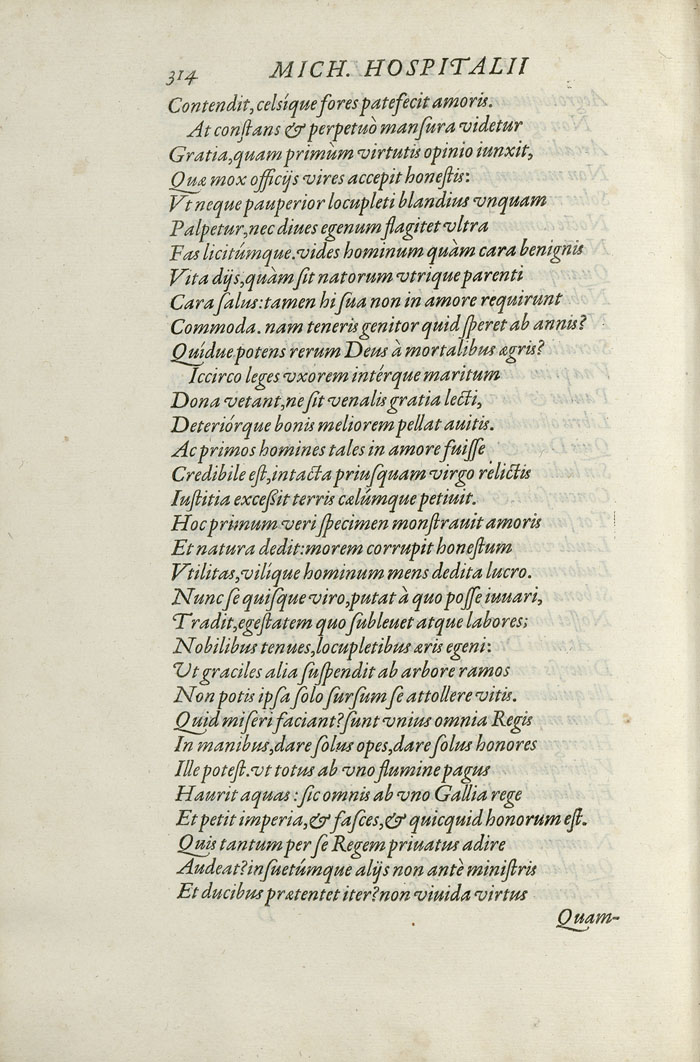 314 MICH. HOSPITALII
Contendit, celsíque fores patefecit amoris.
At constans & perpetuò mansura videtur
Gratia, quam primùm virtutis opinio iunxit,
Quæ mox officijs vires accepit honestis:
Vt neque pauperior locupleti blandius vnquam
Palpetur, nec diues egenum flagitet vltra
Fas licitúmque. vides hominum quàm cara benignis
Vita dijs, quàm sit natorum vtrique parenti
Cara salus: tamen hi sua non in amore requirunt
Commoda. nam teneris genitor quid speret ab annis?
Quídue potens rerum Deus à mortalibus ægris?
Iccirco leges vxorem intérque maritum
Dona vetant, ne sit venalis gratia lecti,
Deteriórque bonis meliorem pellat auitis.
Ac primos homines tales in amore fuisse
Credibile est, intacta priusquam virgo relictis
Iustitia exceßit terris cælúmque petiuit.
Hoc primum veri specimen monstrauit amoris
Et natura dedit: morem corrupit honestum
Vtilitas, vilíque hominum mens dedita lucro.
Nunc se quisque viro, putat à quo posse iuuari,
Tradit, egestatem quo subleuet atque labores;
Nobilibus tenues, locupletibus æris egeni:
Ut graciles alia suspendit ab arbore ramos
Non potis ipsa solo sursum se attollere vitis.
Quid miseri faciant? sunt vnius omnia Regis
In manibus, dare solus opes, dare solus honores
Ille potest. vt totus ab vno flumine pagus
Haurit aquas: sic omnis ab vno Gallia rege
Et petit imperia, & fasces, & quicquid honorum est.
Quis tantum per se Regem priuatus adire
Audeat? insuetúmque alijs non antè ministris
Et ducibus prætentet iter? non viuida virtus
Quam-